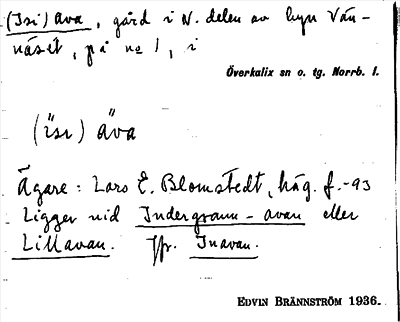 (Isi) ava, gård i N. delen av byn Vän-
näset, på no 1, i
Överkalix sn o. tg. Norrb. l.
(isi) äva
Ägare: Lars E. Blomstedt, häg. f. -93
Ligger vid Indergrann-avan eller
Lillavan. Jfr. Inavan.
EDVIN BRÄNNSTRÖM 1936.